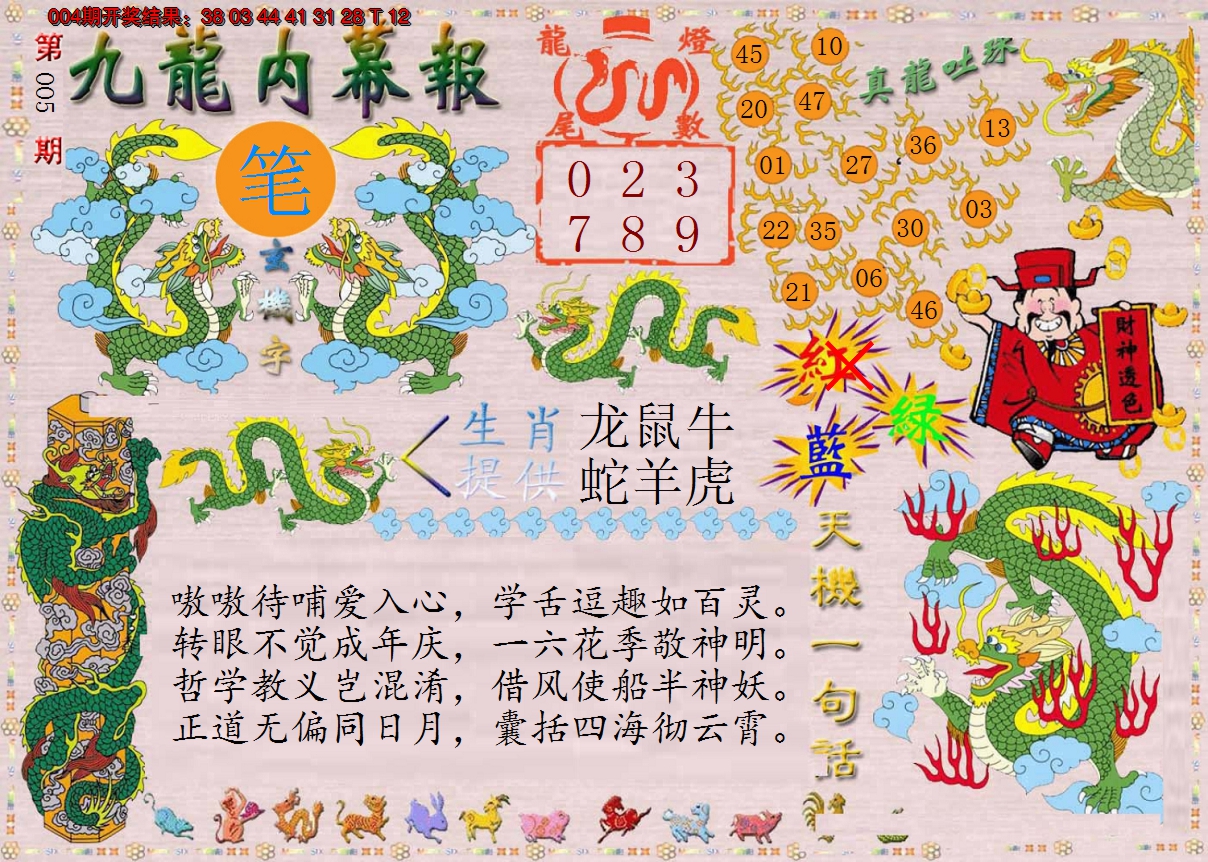 004期开奖结果：38 03 44 41 31 28 T 12
第005期
九龍内幕報
笔
玄機字
龍燈尾數
0 2 3
7 8 9
真龍吐珠
45 10
20 47
01 27 36 13
22 35 30 03
21 06 46
財神透色
紅
綠
藍
生肖提供
龙鼠牛
蛇羊虎
天機一句话
嗷嗷待哺爱入心，学舌逗趣如百灵。
转眼不觉成年庆，一六花季敬神明。
哲学教义岂混淆，借风使船半神妖。
正道无偏同日月，囊括四海彻云霄。